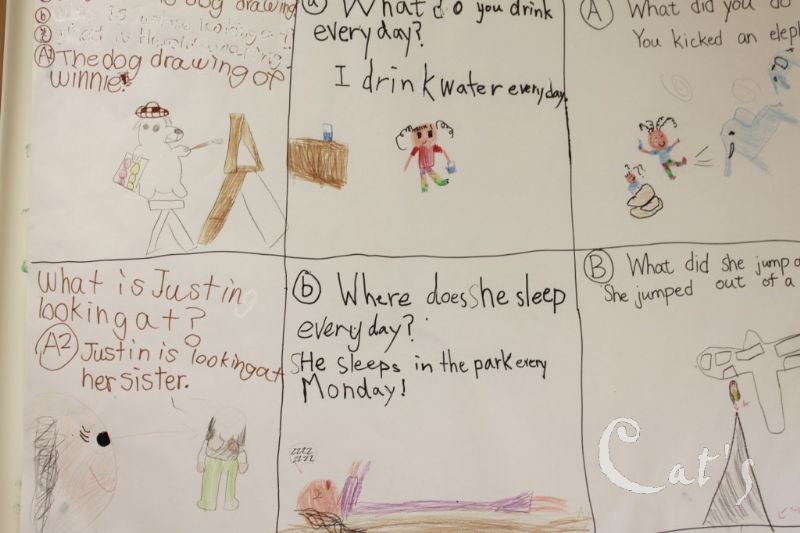 dog drawing
A1 The dog drawing of
winnie.
a What do you drink
every day?
I drink water every day.
A What did you do
You kicked an elep
What is Justin
looking at?
A2 Justin is looking at
her sister.
b Where does She sleep
every day?
SHe sleeps in the park every
Monday!
zzzz
zzzz
B What did she jump o
She jumped out of a
Cat's